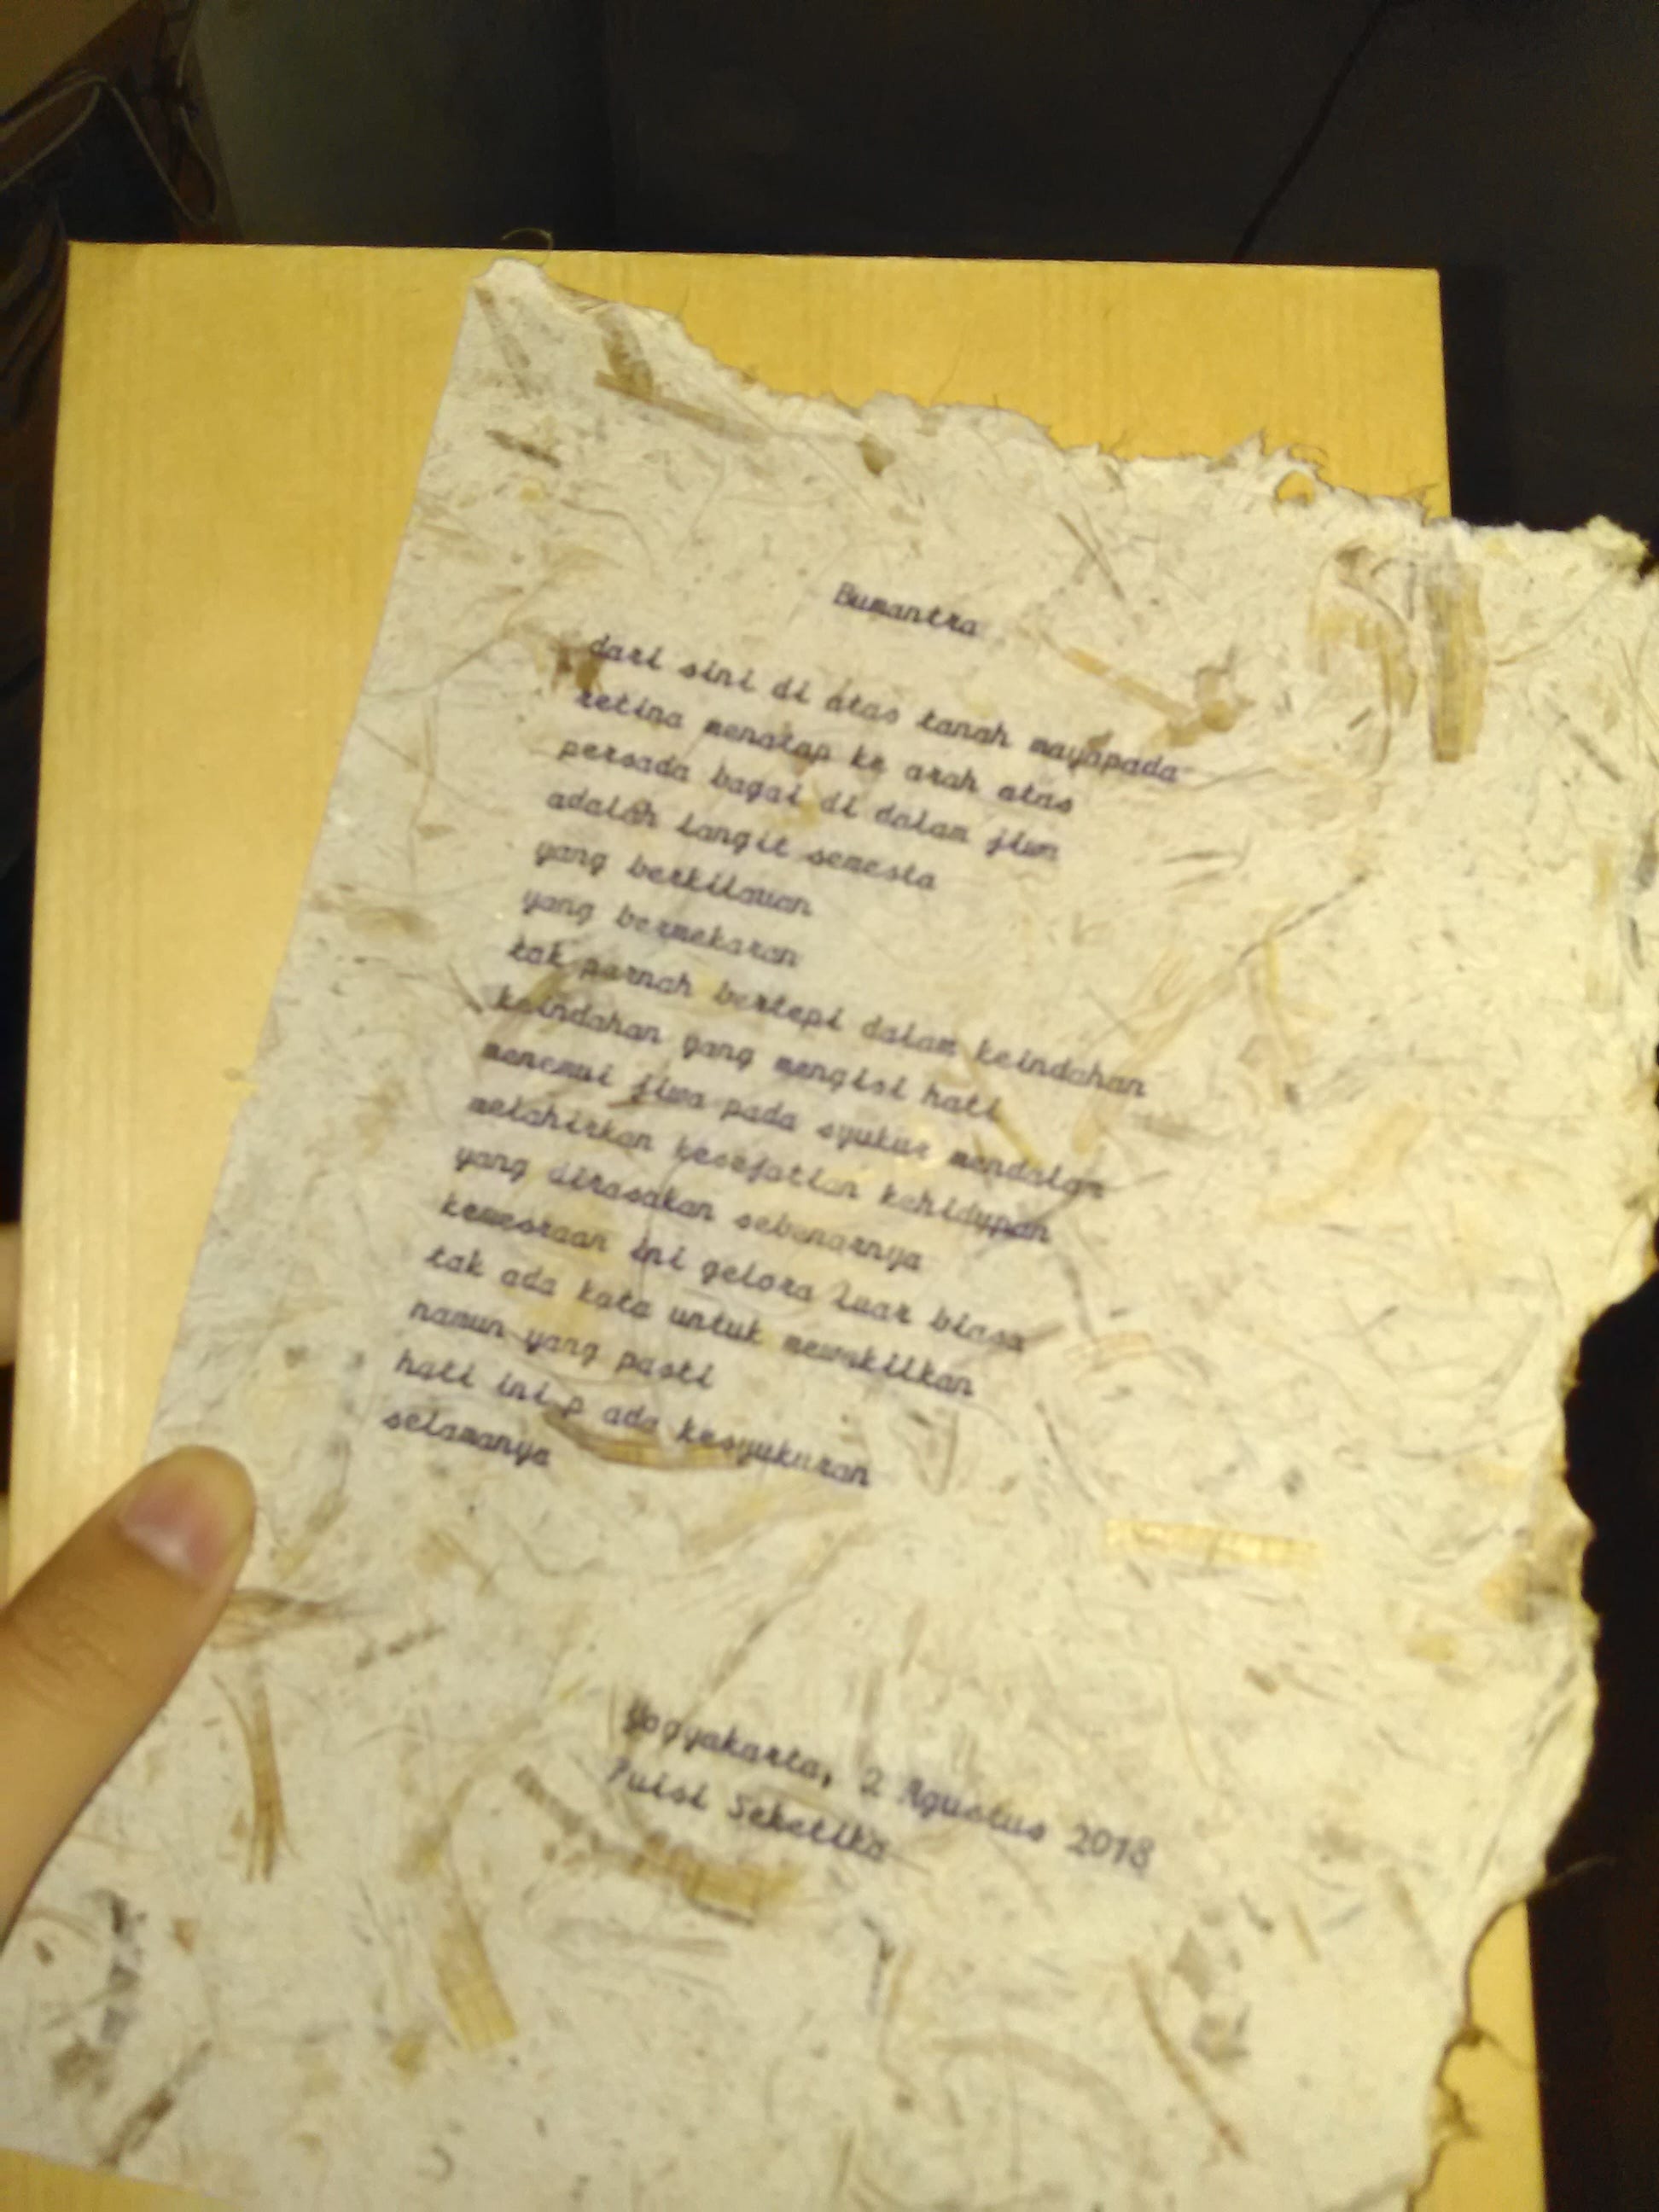 Bumantra
dari sini di atas tanah mayapada
retina menatap ke arah atas
persada bagai di dalam jiwa
adalah langit semesta
yang berkilauan
yang bermekaran
tak pernah bertepi dalam keindahan
keindahan yang mengisi hati
menemui jiwa pada syukur mendalam
melahirkan kesejatian kehidupan
yang dirasakan sebenarnya
kemesraan ini gelora luar biasa
tak ada kata untuk mewakilkan
namun yang pasti
hati ini p ada kesyukuran
selamanya
Yogyakarta, 2 Agustus 2018
Puisi Seketika